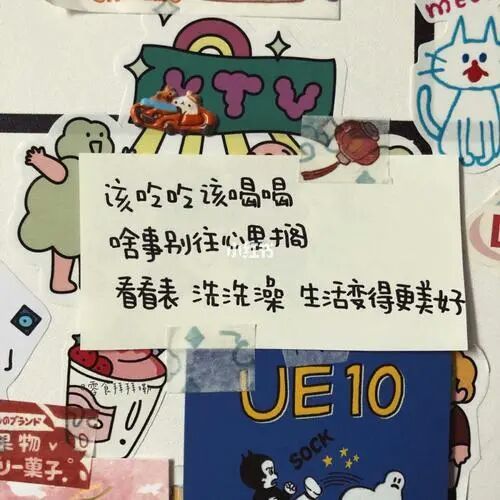 KTV
meo
该吃吃该喝喝
啥事别往心里搁
小红书
看看表 洗洗澡 生活变得更美好
零食拜拜嘞
UE10
SOCK
のブランド
果物
リー菓子